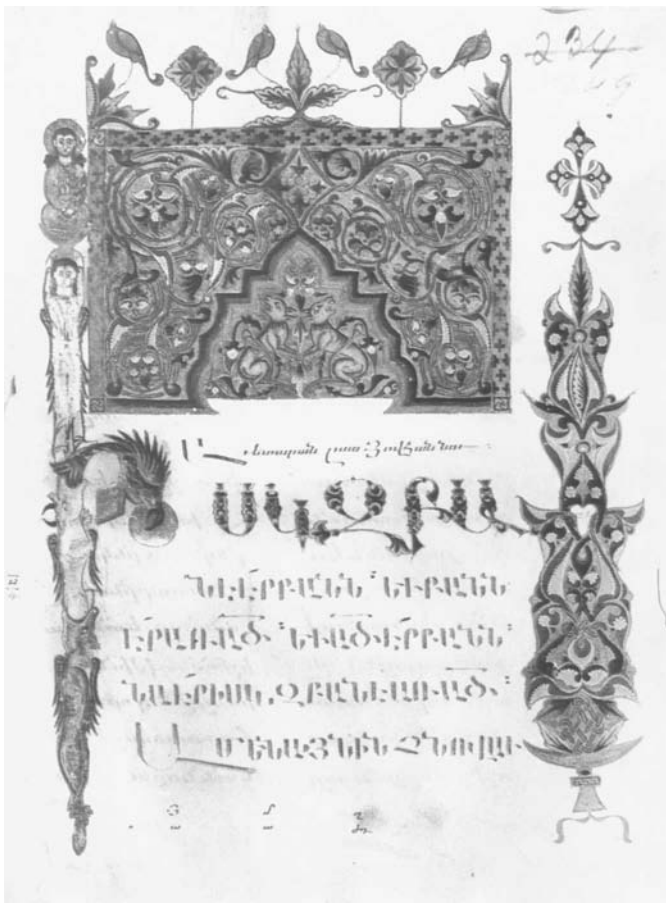 234
49
Աւետարան ըստ Յովհաննու
Ի ՍԿԶԲԱ
ՆԷ ԷՐ ԲԱՆՆ ԵՒ ԲԱՆՆ
ԷՐ ԱՌ ԱԾ ԵՒ ԱԾ ԷՐ ԲԱՆՆ
ՆԱ ԷՐ Ի ՍԿԶԲԱՆԷ ԱՌ ԱԾ
ԱՄԵՆԱՅՆ ԻՆՉ ՆՈՎԱ